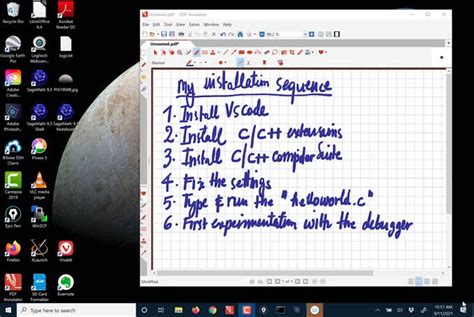 Recycle Bin
LibreOffice 6.4
Acrobat Reader DC
Google Earth Pro
Logitech Webcam...
logs.txt
Adobe Creati...
SageMath 9.3
PIA19048.jpg
Adobe Photosh...
SageMath 9.3 Notebook
Bitvise SSH Client
Picasa 3
Camtasia 2019
VLC media player
Epic Pen
WinSCP
Firefox
XLaunch
Vivaldi
PDF Annotator
SD Card Formatter
Evernote
Unnamed.pdf* - PDF Annotator
File Edit View Document Tool Extras Window Help
98.2 %
Unnamed.pdf*
Marker
My installation sequence
1. Install VScode
2. Install C/C++ extensions
3. Install C/C++ compiler suite
4. Fix the settings
5. Type & run the "Helloworld.c"
6. First experimentation with the debugger
Modified
1 of 1
Type here to search
10:17 AM
9/11/2021